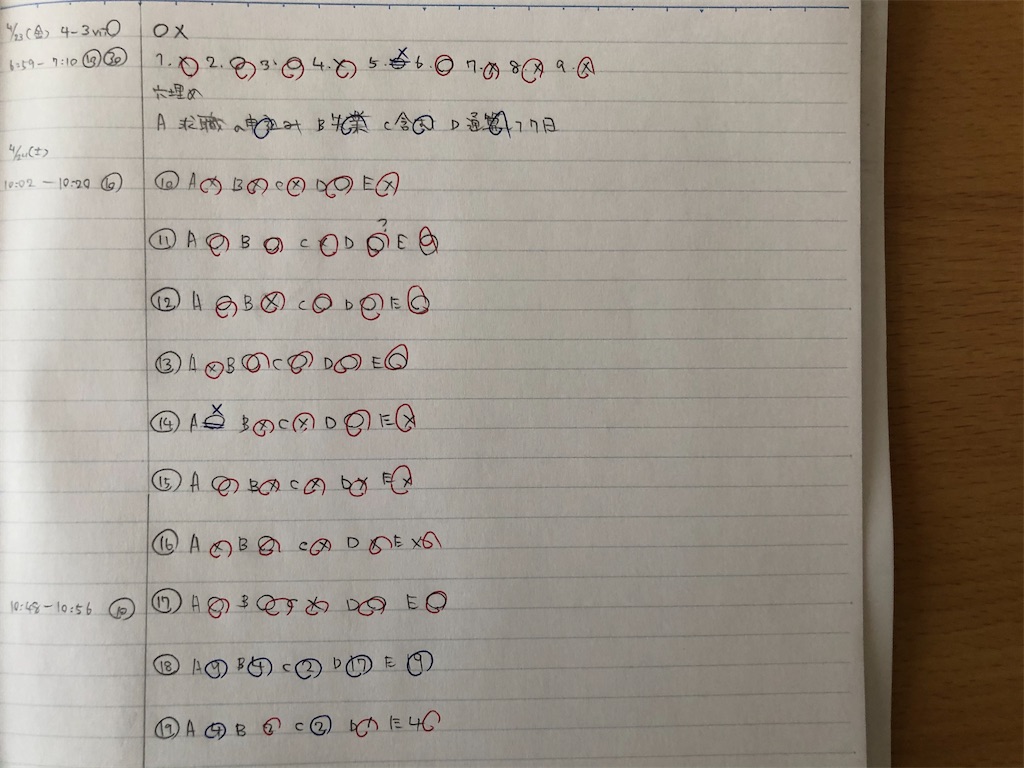 4/23(金) 4-3 ○×
6:59-7:10 ⑲ ⑳ 1.× 2.○ 3.○ 4.× 5.○× 6.○ 7.× 8.× 9.×
穴埋め
A 求職の申込み B 失業 C 含 D 通算 7日
4/24(土)
10:02-10:20 ⑩ A× B× C× D○ E×
⑪ A○ B○ C○ D○? E○
⑫ A○ B× C○ D○ E○
⑬ A× B○ C○ D○ E○
⑭ A○× B× C× D○ E×
⑮ A○ B× C× D× E×
⑯ A× B○ C× D E×
10:48-10:56 ⑩ ⑰ A○ B○ C× D○ E○
⑱ A⑨ B④ C② D⑰ E⑨
⑲ A④ B C② D E4